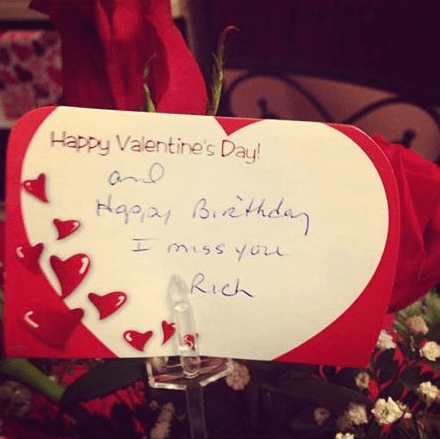 Happy Valentine's Day!
and
Happy Birthday
I miss you
Rich